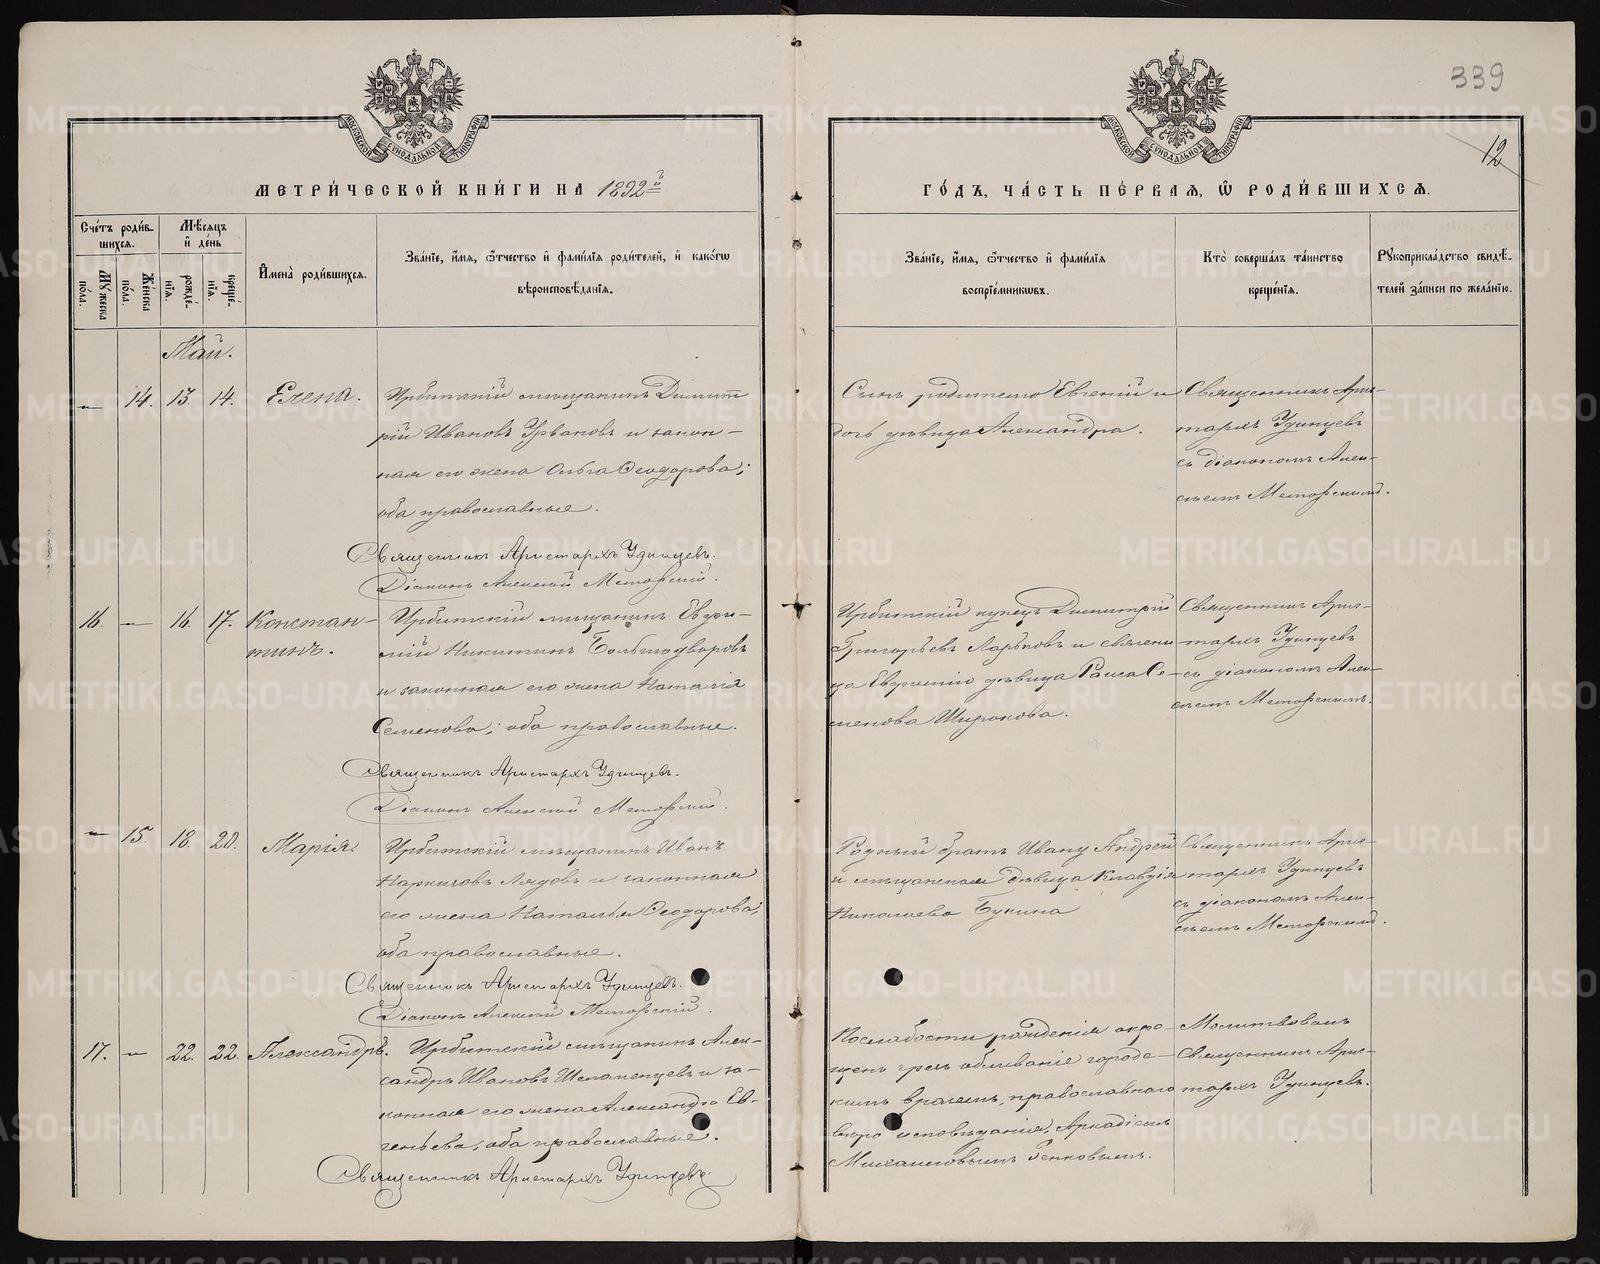 339
12
МЕТРИ́ЧЕСКОЙ КНИ́ГИ НА 1892й
ГО́ДЪ, ЧА́СТЬ ПЕ́РВАЯ, Ѿ РОДИ́ВШИХСЯ.
Сче́тъ роди́в-
шихся.
Мѣ́сяцъ
и҆ де́нь
Му́жеска
по́ла.
Же́нска
по́ла.
рожде́-
нїя.
креще́-
нїя.
И҆мена̀ роди́вшихся.
Зва́нїе, и҆́мя, ѻ҆́тчество и҆ фами́лїя роди́телей, и҆ како́гѡ
вѣроисповѣ́данїя.
Зва́нїе, и҆́мя, ѻ҆́тчество и҆ фами́лїя
воспрїе́мникѡвъ.
Кто̀ соверша́лъ та́инство
креще́нїя.
Рꙋкоприкла́дство свидѣ́-
телей за́писи по жела́нїю.
Май.
— 14. 13. 14. Елена.
Ирбитскій мѣщанинъ Димит
рій Ивановъ Урвановъ и закон-
ная его жена Ольга Ѳеодорова;
оба православные.
Священникъ Аристархъ Удинцевъ.
Діаконъ Алексей Меморскій.
Сынъ родителю Евгеній и
дочь дѣвица Александра.
Священникъ Арис-
тархъ Удинцевъ
съ діакономъ Алек-
сѣемъ Меморскимъ.
16. — 16. 17. Констан-
тинъ.
Ирбитскій мѣщанинъ Евфи-
мій Никитинъ Большедворовъ
и законная его жена Наталія
Семенова; оба православные.
Священникъ Аристархъ Удинцевъ.
Діаконъ Алексей Меморскій.
Ирбитскій купецъ Димитрій
Григорьевъ Ларьковъ и свячени
ца Евфимію дѣвица Раиса Се-
менова Широкова.
Священникъ Арис-
тархъ Удинцевъ
съ діакономъ Алек-
сѣемъ Меморскимъ.
— 15. 18. 20. Марія.
Ирбитскій мѣщанинъ Иванъ
Наркизовъ Лядовъ и законная
его жена Наталья Ѳеодорова;
оба православные.
Священникъ Аристархъ Удинцевъ.
Діаконъ Алексѣй Меморскій.
Родный братъ Ивану Андрей
и мѣщанская дѣвица Клавдія
Николаева Букина
Священникъ Арис-
тархъ Удинцевъ
съ діакономъ Алек-
сѣемъ Меморскимъ.
17. — 22. 22. Александръ.
Ирбитскій мѣщанинъ Алек-
сандръ Ивановъ Шеломенцевъ и за-
конная его жена Александра Ев-
геньева; оба православные.
Священникъ Аристархъ Удинцевъ.
По слабости рожденія окре-
щенъ чрезъ обливаніе городс-
кимъ врачемъ, православнаго
вѣроисповѣданія, Аркадіемъ
Михаиловымъ Генковымъ.
Молитвовалъ
Священникъ Арис-
тархъ Удинцевъ.